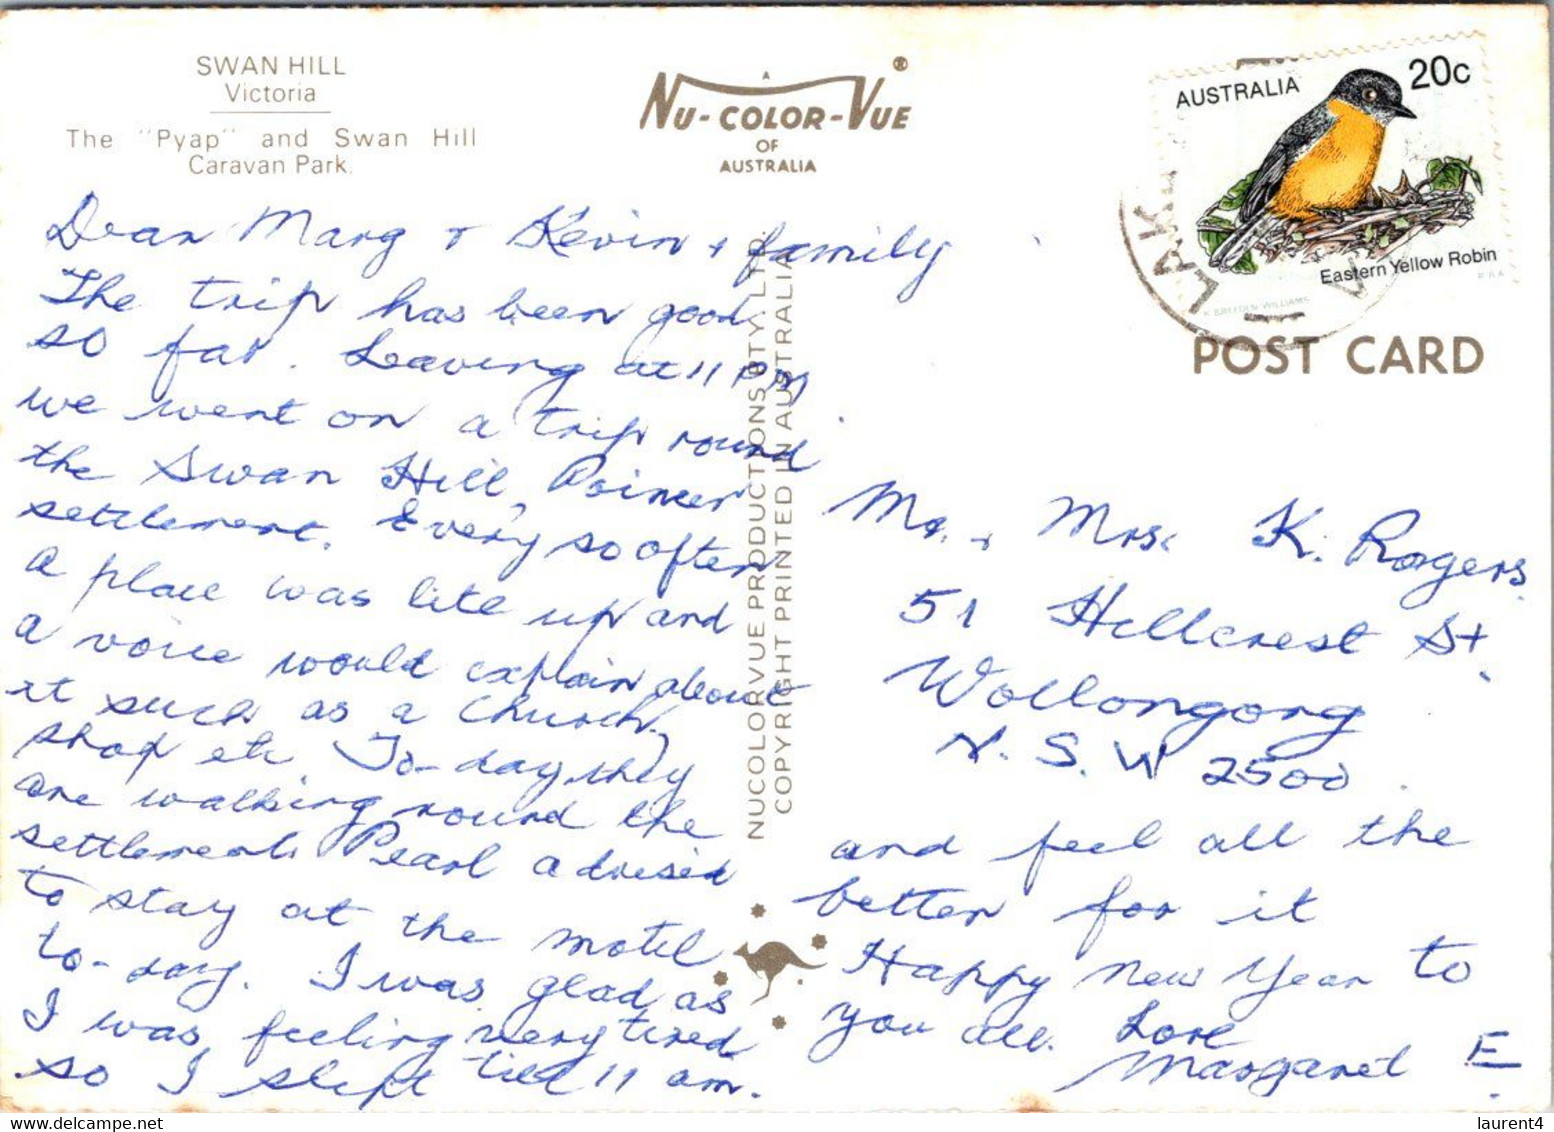 SWAN HILL
Victoria
The "Pyap" and Swan Hill
Caravan Park.
A
NU-COLOR-VUE®
OF
AUSTRALIA
AUSTRALIA 20c
Eastern Yellow Robin
POST CARD
NUCOLORVUE PRODUCTIONS PTY. LTD.
COPYRIGHT PRINTED IN AUSTRALIA
Dear Marg + Kevin + family
The trip has been good
so far. Leaving at 11 PM
we went on a trip round
the Swan Hill, Poineer
settlement. Every so often
a place was lite up and
a voice would explain about
it such as a Church,
shop etc. To-day they
are walking round the
settlement. Pearl adviesed
to stay at the motel
to-day. I was glad as
I was feeling very tired
so I slept till 11 am.
Mr. + Mrs. K. Rogers
51 Hillcrest St
Wollongong
N.S.W 2500.
and feel all the
better for it
Happy New Year to
you all. Love
Margaret E
laurent4